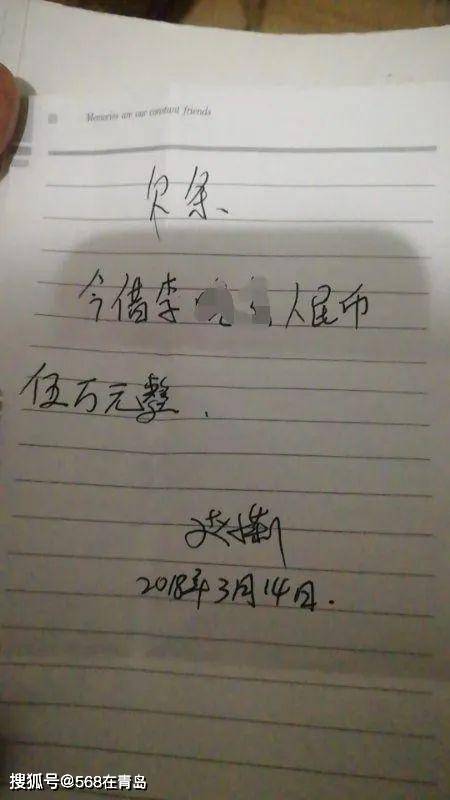 Memories are our constant friends
欠条
今借李 人民币
伍万元整.
2018年3月14日.
搜狐号@568在青岛